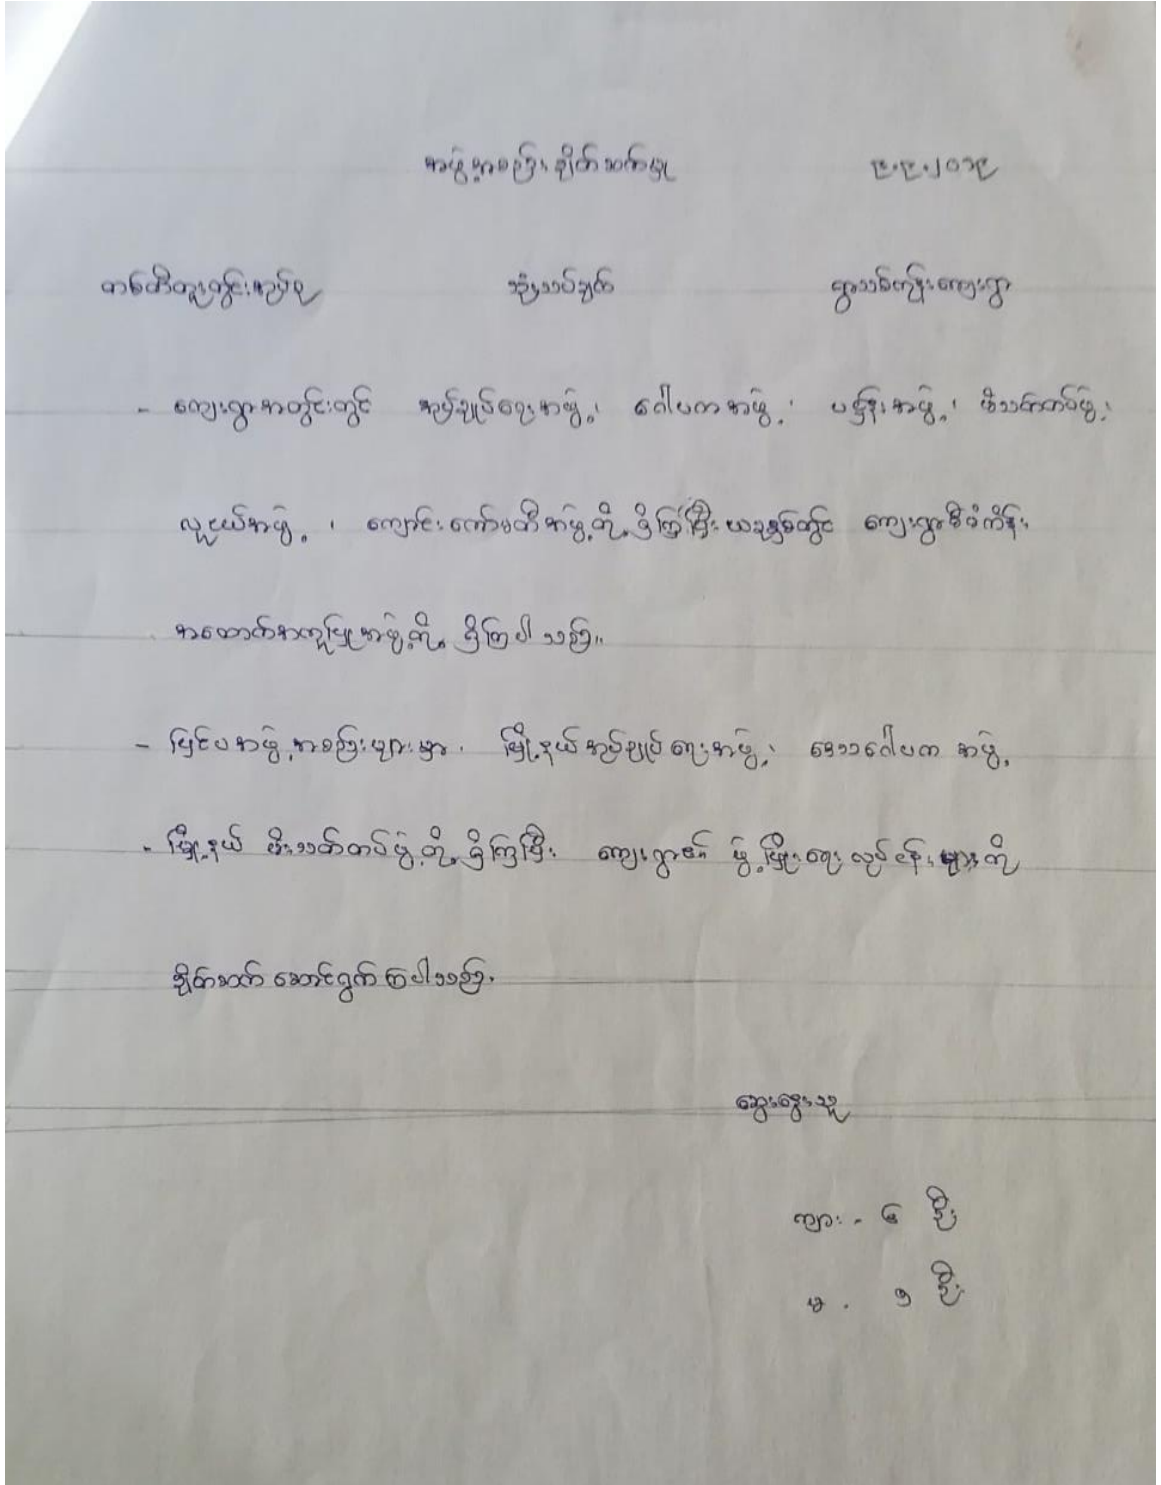 အဖွဲ့အစည်းချိတ်ဆက်မှု ၉.၉.၂၀၁၉
တစ်တီတူးတွင်းအုပ်စု သုံးသပ်ချက် ရွာသစ်ကုန်းကျေးရွာ
- ကျေးရွာအတွင်းတွင် အုပ်ချုပ်ရေးအဖွဲ့၊ ဂေါပကအဖွဲ့၊ ပဌာန်းအဖွဲ့၊ မီးသတ်တပ်ဖွဲ့၊
လူငယ်အဖွဲ့၊ ကျောင်းကော်မတီအဖွဲ့တို့ရှိကြပြီး ယခုနှစ်တွင် ကျေးရွာစီမံကိန်း
အထောက်အကူပြုအဖွဲ့တို့ ရှိကြပါသည်။
- ပြင်ပအဖွဲ့အစည်းများမှာ၊ မြို့နယ်အုပ်ချုပ်ရေးအဖွဲ့၊ ဒေသဂေါပကအဖွဲ့၊
- မြို့နယ် မီးသတ်တပ်ဖွဲ့တို့ရှိကြပြီး ကျေးရွာ၏ ဖွံ့ဖြိုးရေးလုပ်ငန်းများကို
ချိတ်ဆက်ဆောင်ရွက်ကြပါသည်။
ဆွေးနွေးသူ
ကျား - ၆ ဦး
မ - ၅ ဦး